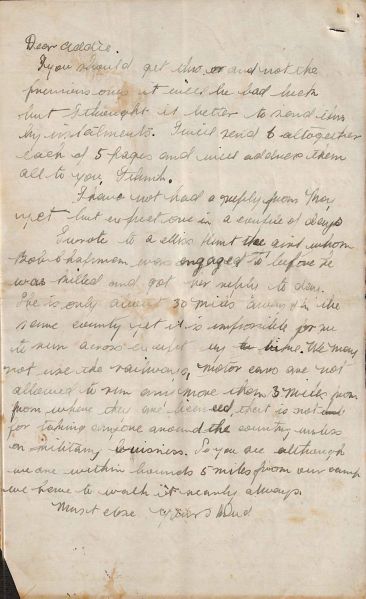 Dear Addie.
If you should get this, or and not the
previous ones it will be bad luck
but I thought it better to send this
by instalments. I will send 6 altogether
each of 5 pages and will address them
all to you,
I have not had a reply from
yet but expect one in a couple of days
I wrote to a Miss Hunt the girl whom
Bob Chapman was engaged to before he
was killed and got her reply to day.
She is only about 30 miles away in the
same county yet it is impossible for me
to run across except by We may
not use the railways, motor cars are not
allowed to run any more than 3 miles from
from where they are licensed, that is not
for taking anyone around the country unless
on military business. So you see although
we are within bounds 5 miles from our camp
we have to walk it nearly always.
Must close Yours Bud